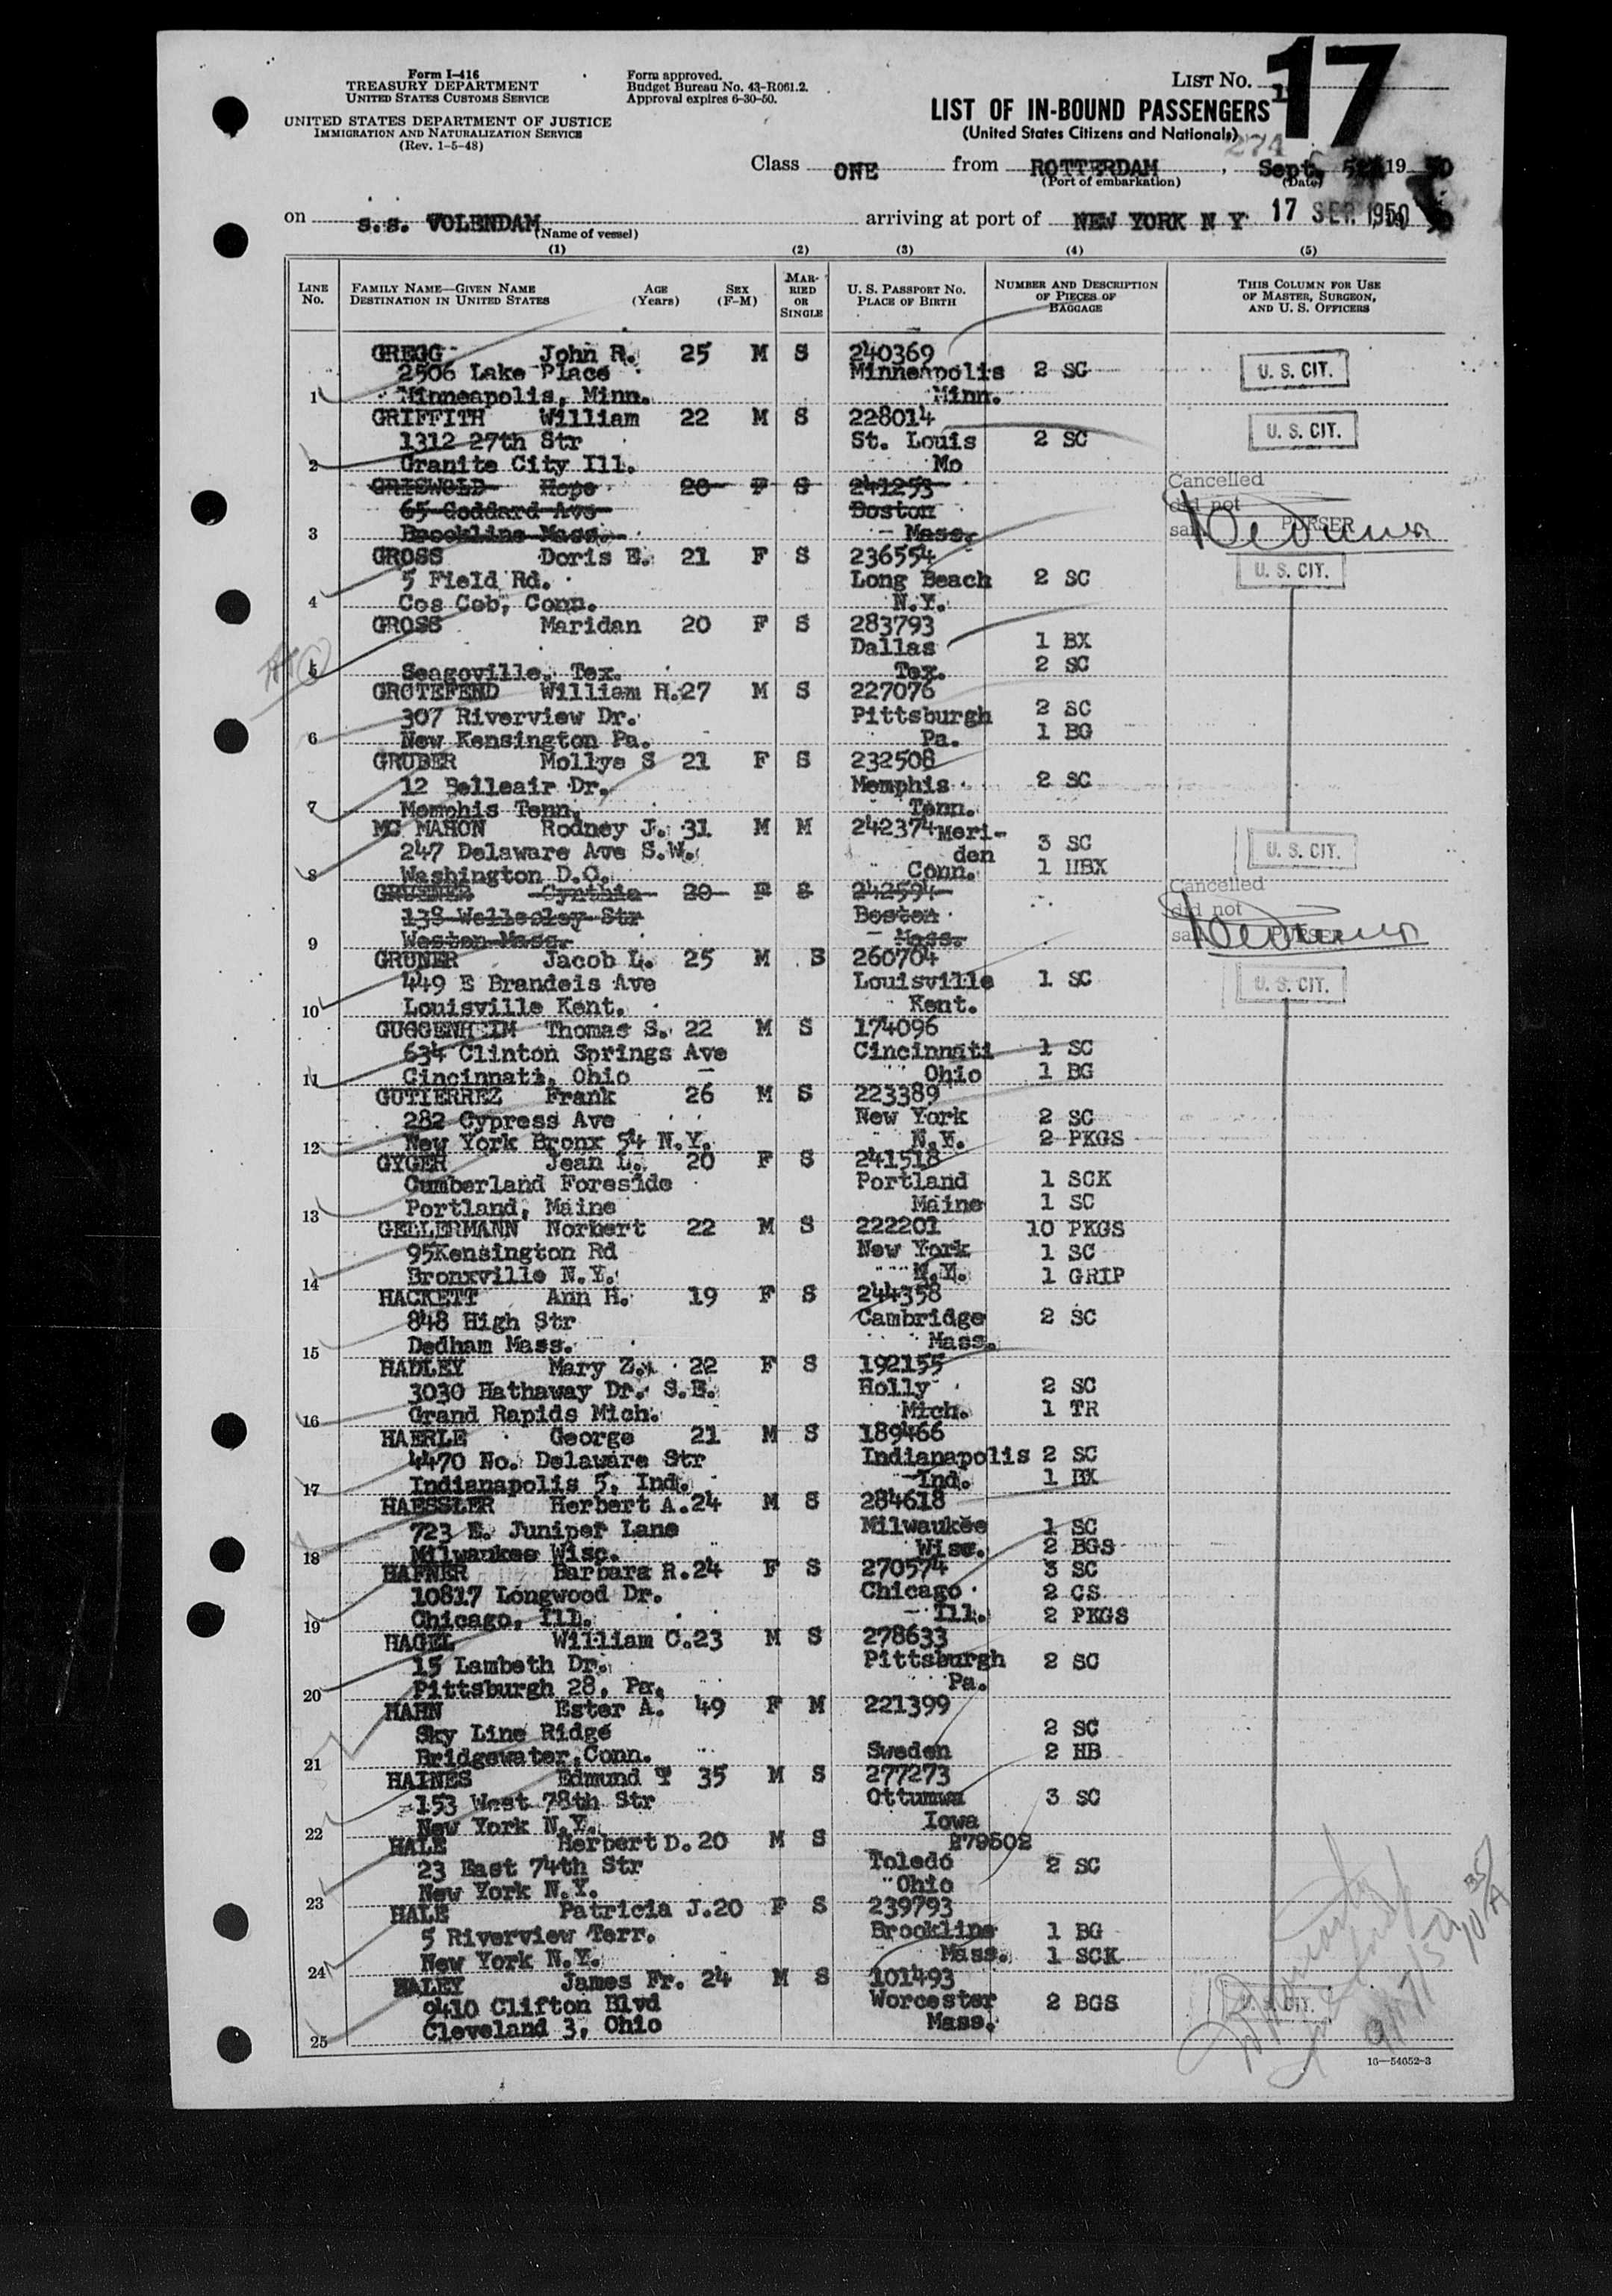 Form I-416
TREASURY DEPARTMENT
UNITED STATES CUSTOMS SERVICE
UNITED STATES DEPARTMENT OF JUSTICE
IMMIGRATION AND NATURALIZATION SERVICE
(Rev. 1-5-48)
Form approved.
Budget Bureau No. 43-R061.2.
Approval expires 6-30-50.
LIST NO. 17
LIST OF IN-BOUND PASSENGERS
(United States Citizens and Nationals)
Class ONE from ROTTERDAM, Sept. 19 50
(Port of embarkation) (Date)
on s.s. VOLENDAM arriving at port of NEW YORK N Y 17 SEP. 1950
(Name of vessel)
(1) (2) (3) (4) (5)
LINE NO. FAMILY NAME—GIVEN NAME DESTINATION IN UNITED STATES AGE (Years) SEX (F-M) MARRIED OR SINGLE U. S. PASSPORT NO. PLACE OF BIRTH NUMBER AND DESCRIPTION OF PIECES OF BAGGAGE THIS COLUMN FOR USE OF MASTER, SURGEON, AND U. S. OFFICERS
GREGG John R. 25 M S 240369
2506 Lake Place Minneapolis 2 SC U. S. CIT.
1 Minneapolis, Minn. Minn.
GRIFFITH William 22 M S 228014
1312 27th Str St. Louis 2 SC U. S. CIT.
2 Granite City Ill. Mo
GRISWOLD Hope 20 F S 241253 Cancelled
65 Goddard Ave Boston did not
3 Brookline Mass. Mass. sail PURSER
GROSS Doris E. 21 F S 236554 U. S. CIT.
5 Field Rd. Long Beach 2 SC
4 Cos Cob, Conn. N.Y.
GROSS Maridan 20 F S 283793
Dallas 1 BX
5 Seagoville, Tex. Tex. 2 SC
GROTEFEND William H. 27 M S 227076
307 Riverview Dr. Pittsburgh 2 SC
6 New Kensington Pa. Pa. 1 BG
GRUBER Mollye S 21 F S 232508
12 Belleair Dr. Memphis 2 SC
7 Memphis Tenn, Tenn.
MC MAHON Rodney J. 31 M M 242374 Meri-
247 Delaware Ave S.W. den 3 SC U. S. CIT.
8 Washington D.C. Conn. 1 HBX
Cynthia 20 F S 242594 Cancelled
138 Wellesley Str Boston did not
9 Weston Mass. Mass. sail
GRUNER Jacob L. 25 M S 260704
449 E Brandeis Ave Louisville 1 SC U. S. CIT.
10 Louisville Kent. Kent.
GUGGENHEIM Thomas S. 22 M S 174096
634 Clinton Springs Ave Cincinnati 1 SC
11 Cincinnati, Ohio Ohio 1 BG
GUTIERREZ Frank 26 M S 223389
282 Cypress Ave New York 2 SC
12 New York Bronx 54 N.Y. N.Y. 2 PKGS
GYGER Jean L. 20 F S 241518
Cumberland Foreside Portland 1 SCK
13 Portland, Maine Maine 1 SC
GELLERMANN Norbert 22 M S 222201 10 PKGS
95Kensington Rd New York 1 SC
14 Bronxville N.Y. N.Y. 1 GRIP
HACKETT Ann H. 19 F S 244358
848 High Str Cambridge 2 SC
15 Dedham Mass. Mass.
HADLEY Mary Z. 22 F S 192155
3030 Hathaway Dr. S.E. Holly 2 SC
16 Grand Rapids Mich. Mich. 1 TR
HAERLE George 21 M S 189466
4470 No. Delaware Str Indianapolis 2 SC
17 Indianapolis 5, Ind. Ind. 1 BX
HAESSLER Herbert A. 24 M S 284618
723 E. Juniper Lane Milwaukee 1 SC
18 Milwaukee Wisc. Wisc. 2 BGS
HAFNER Barbara R. 24 F S 270574 3 SC
10817 Longwood Dr. Chicago 2 CS
19 Chicago, Ill. Ill. 2 PKGS
HAGEL William C. 23 M S 278633
15 Lambeth Dr. Pittsburgh 2 SC
20 Pittsburgh 28, Pa. Pa.
HAHN Ester A. 49 F M 221399
Sky Line Ridge 2 SC
21 Bridgewater, Conn. Sweden 2 HB
HAINES Edmund T 35 M S 277273
153 West 78th Str Ottumwa 3 SC
22 New York N.Y. Iowa
HALE Herbert D. 20 M S 279502
23 East 74th Str Toledo 2 SC
23 New York N.Y. Ohio
HALE Patricia J. 20 F S 239793
5 Riverview Terr. Brookline 1 BG
24 New York N.Y. Mass. 1 SCK
HALEY James Fr. 24 M S 101493
9410 Clifton Blvd Worcester 2 BGS U. S. CIT.
25 Cleveland 3, Ohio Mass.
16—54652-3